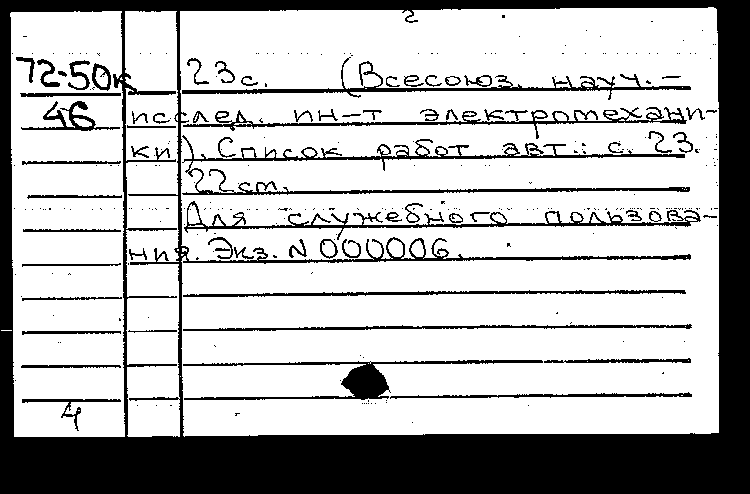 2
72-50к 23с. (Всесоюз. науч.-
46 исслед. ин-т электромехани-
ки). Список работ авт.: с. 23.
22см.
Для служебного пользова-
ния. Экз. N 000006.
4